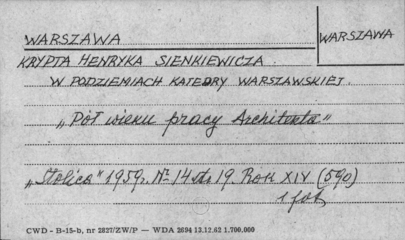 WARSZAWA
WARSZAWA
KRYPTA HENRYKA SIENKIEWICZA.
W PODZIEMIACH KATEDRY WARSZAWSKIEJ.
„Pół wieku pracy Architekta"
„Stolica" 1959 r. Nº 14 str 19. Rok XIV (590)
1 fot.
CWD - B-15-b, nr 2827/ZW/P — WDA 2694 12.12.62 1.700.000